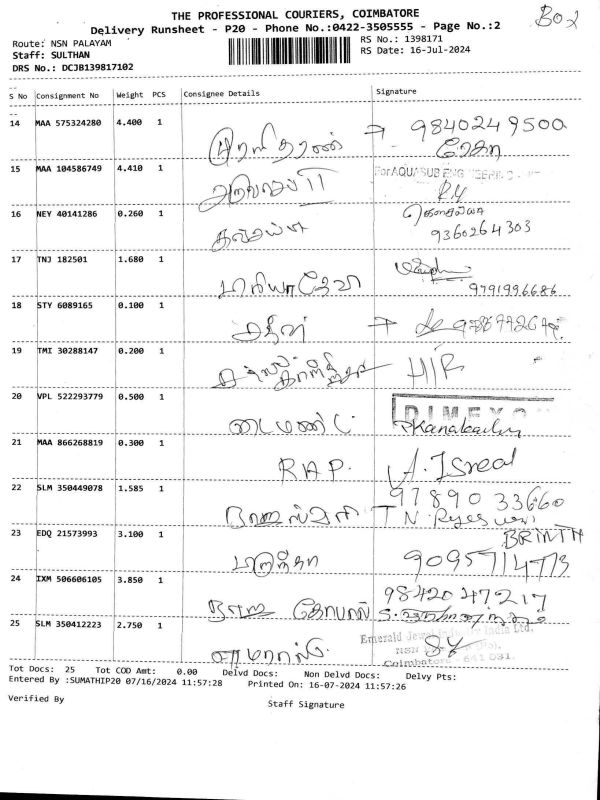 Bo2
THE PROFESSIONAL COURIERS, COIMBATORE
Delivery Runsheet - P20 - Phone No.:0422-3505555 - Page No.:2
Route: NSN PALAYAM
RS No.: 1398171
Staff: SULTHAN
RS Date: 16-Jul-2024
DRS No.: DCJB139817102
S No Consignment No Weight PCS Consignee Details Signature
14 MAA 575324280 4.400 1 முரளிதரன் → 9840249500
ரேகா
15 MAA 104586749 4.410 1 For AQUASUB ENG
16 NEY 40141286 0.260 1
9360264303
17 TNJ 182501 1.680 1 மரியாதேவி
9791996686
18 STY 6089165 0.100 1 →
19 TMI 30288147 0.200 1 HIR
20 VPL 522293779 0.500 1 டைமண்ட் DIMEXON
21 MAA 866268819 0.300 1 R.A.P. A. Isreal
22 SLM 350449078 1.585 1 ராஜேஸ்வரி 97890 33660
T N.
23 EDQ 21573993 3.100 1 BRINTH
9095714773
24 IXM 506606105 3.850 1 ராஜ கோபால் 9842047217
25 SLM 350412223 2.750 1 எமரால்டு Emerald Jewel Industry India Ltd.
Coimbatore - 641 031.
Tot Docs: 25 Tot COD Amt: 0.00 Delvd Docs: Non Delvd Docs: Delvy Pts:
Entered By :SUMATHIP20 07/16/2024 11:57:28 Printed On: 16-07-2024 11:57:26
Verified By
Staff Signature